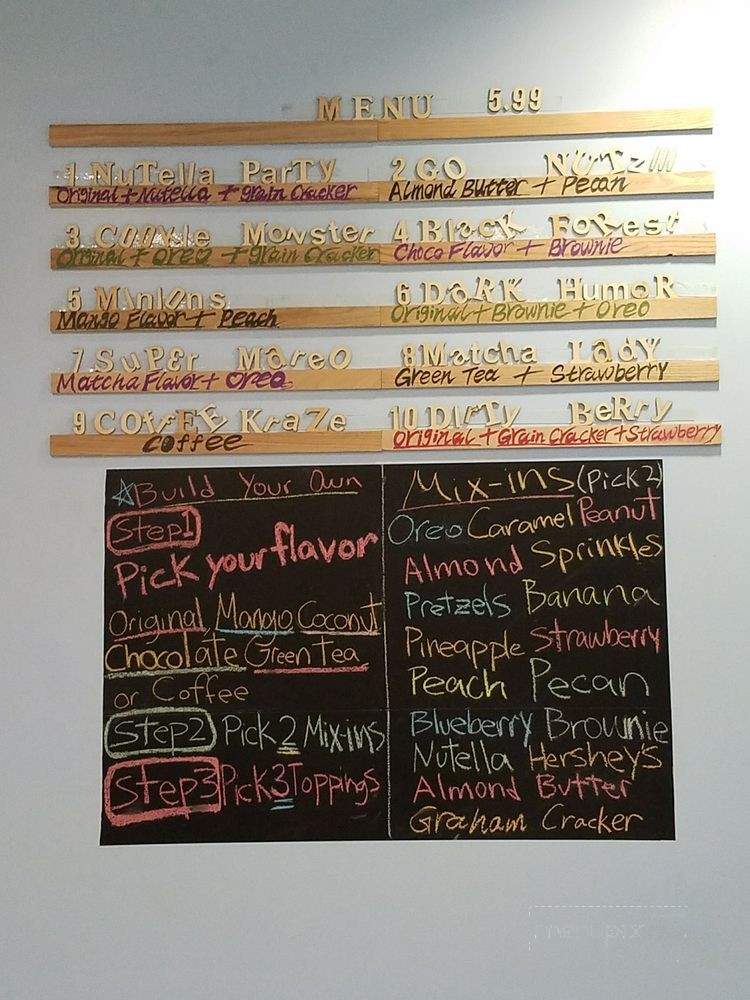 MENU 5.99
1 NuTella ParTy
Original + Nutella + grain Cracker
2 GO NUTz!!!
Almond Butter + Pecan
3 COOkIe MonSter
Original + Oreo + grain Cracker
4 BlaCK FoResT
Choco Flavor + Brownie
5 MInIOns
Mango Flavor + Peach
6 DaRK HumoR
Original + Brownie + Oreo
7 SuPEr MareO
Matcha Flavor + Oreo
8 Matcha LadY
Green Tea + Strawberry
9 COffEE KraZe
coffee
10 DIrTy BeRry
Original + Grain Cracker + Strawberry
☆Build Your Own
Step1
Pick your flavor
Original, Mango Coconut
Chocolate Green Tea
or Coffee
Step2 Pick 2 Mix-ins
Step3 Pick 3 Toppings
Mix-ins (Pick 2)
Oreo Caramel Peanut
Almond Sprinkles
Pretzels Banana
Pineapple Strawberry
Peach Pecan
Blueberry Brownie
Nutella Hershey's
Almond Butter
Graham Cracker
menupix